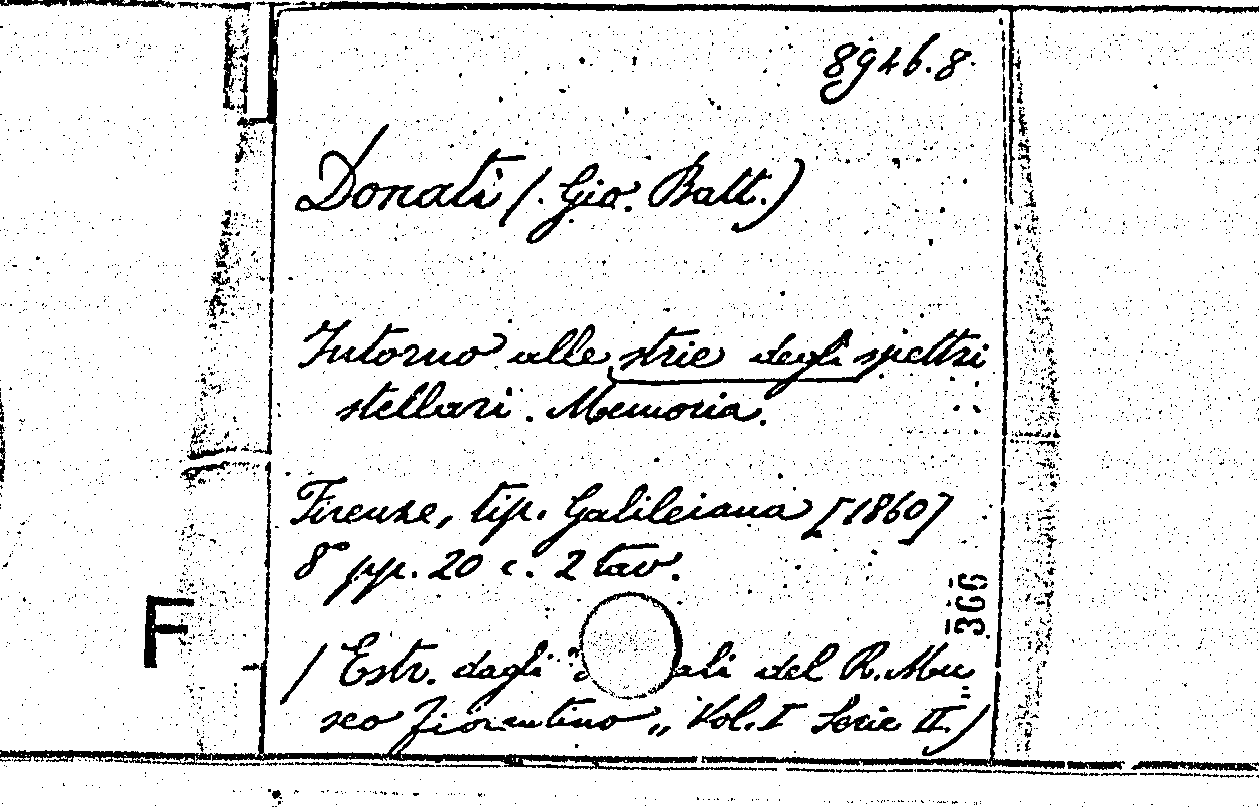 8946.8.
Donati (. Gio. Batt.)
Intorno alle strie degli spettri
stellari. Memoria.
Firenze, tip. Galileiana [1860]
8° pp. 20 c. 2 tav.
366
F
(Estr. dagli ali del R. Mu
seo fiorentino „ Vol. I Serie II.)